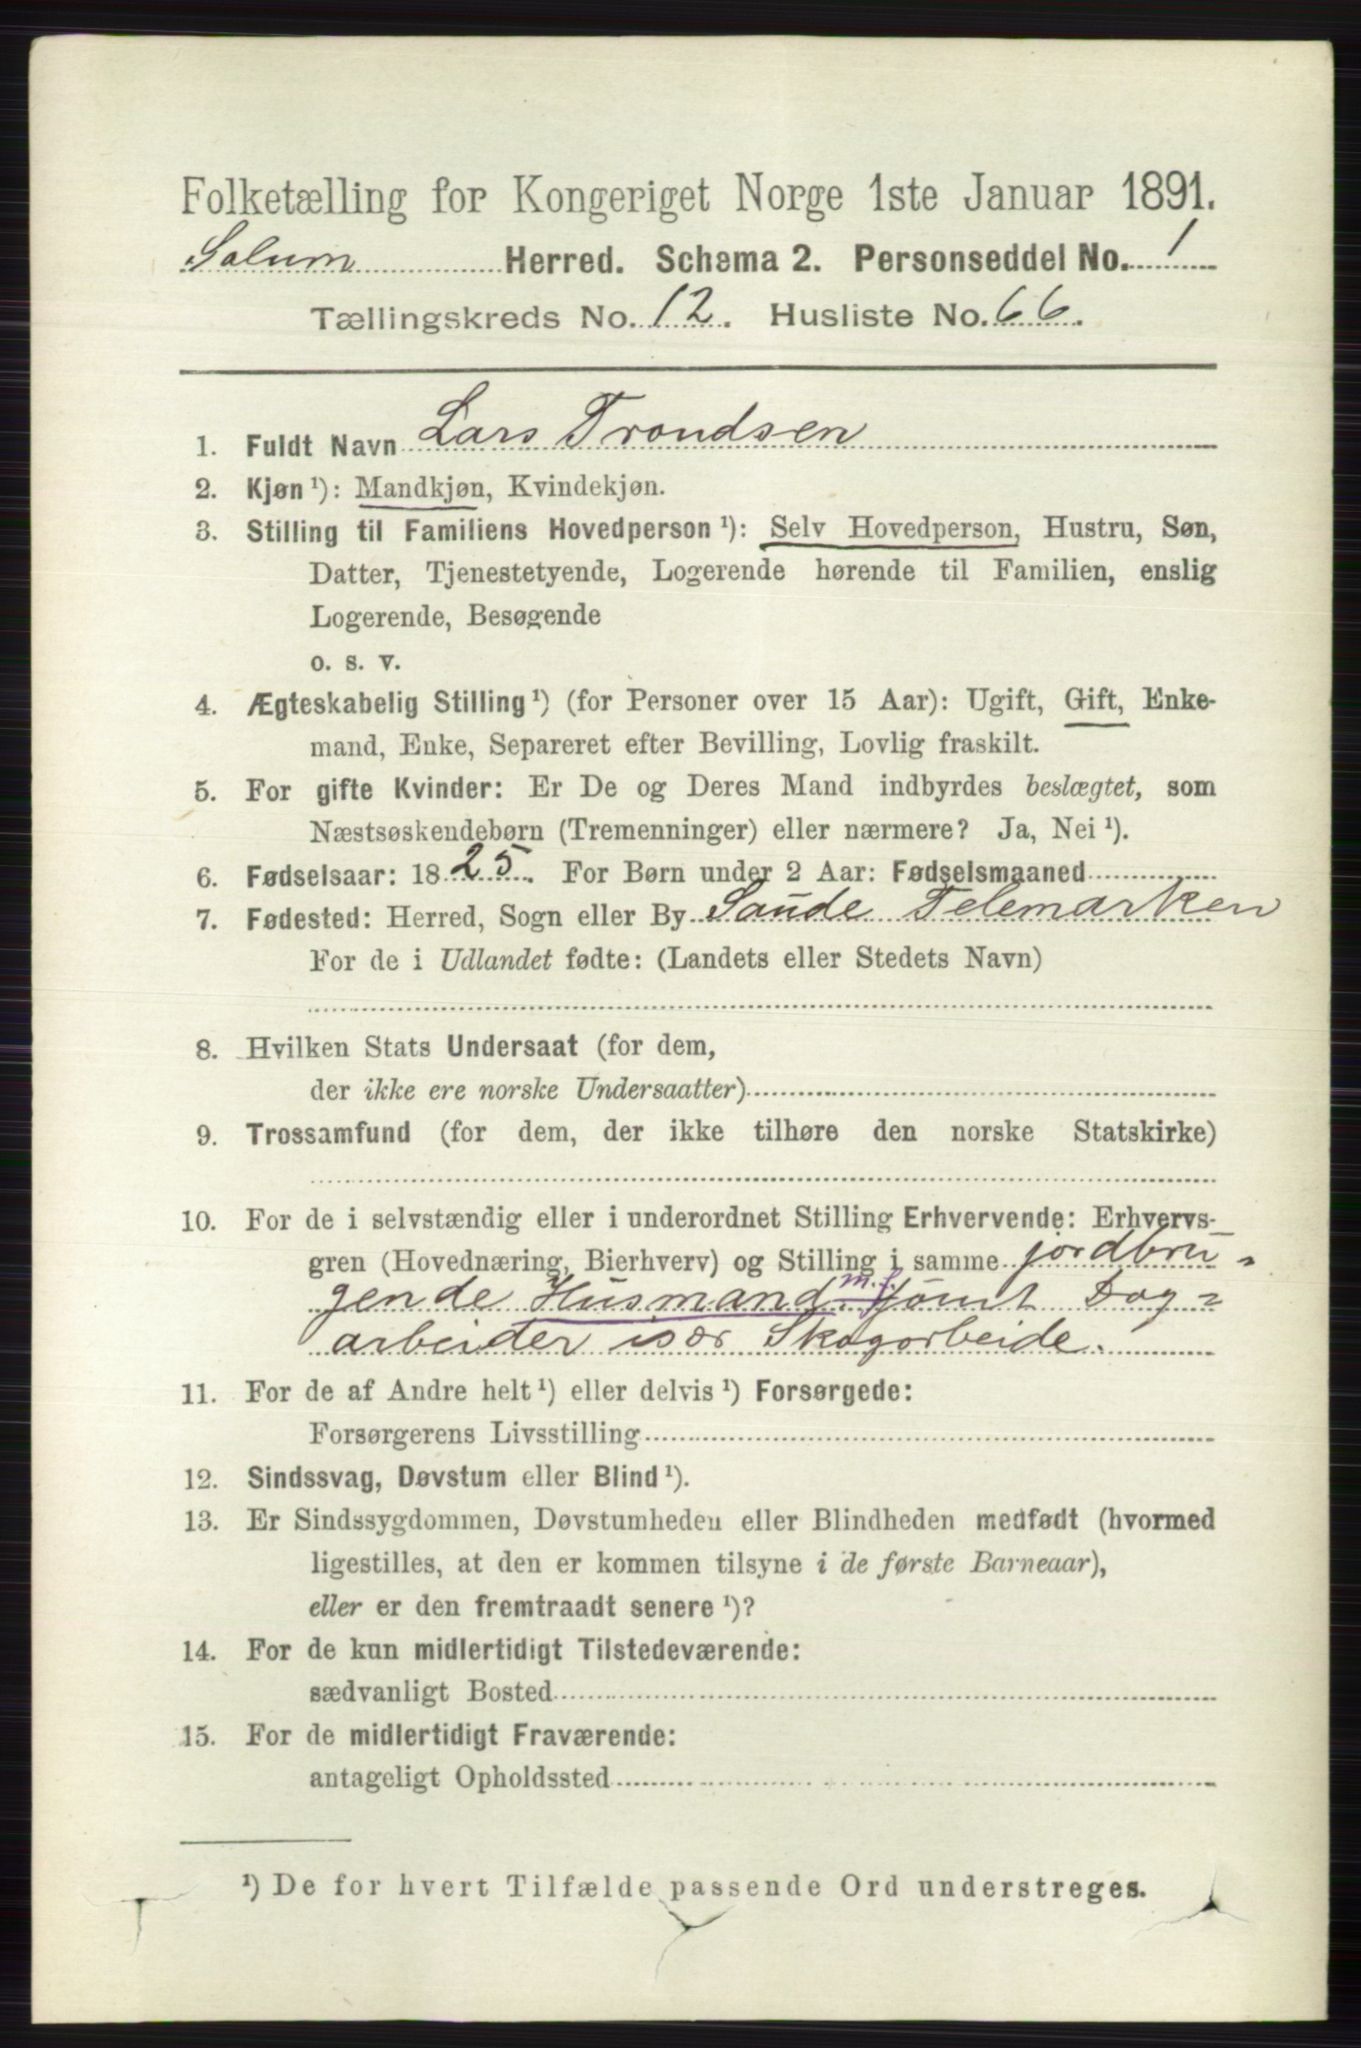 Folketælling for Kongeriget Norge 1ste Januar 1891.
Solum Herred. Schema 2. Personseddel No. 1
Tællingskreds No. 12. Husliste No. 66.
1. Fuldt Navn Lars Trondsen
2. Kjøn¹): Mandkjøn, Kvindekjøn.
3. Stilling til Familiens Hovedperson¹): Selv Hovedperson, Hustru, Søn,
Datter, Tjenestetyende, Logerende hørende til Familien, enslig
Logerende, Besøgende
o. s. v.
4. Ægteskabelig Stilling¹) (for Personer over 15 Aar): Ugift, Gift, Enke-
mand, Enke, Separeret efter Bevilling, Lovlig fraskilt.
5. For gifte Kvinder: Er De og Deres Mand indbyrdes beslægtet, som
Næstsøskendebørn (Tremenninger) eller nærmere? Ja, Nei¹).
6. Fødselsaar: 1825. For Børn under 2 Aar: Fødselsmaaned
7. Fødested: Herred, Sogn eller By Saude Telemarken
For de i Udlandet fødte: (Landets eller Stedets Navn)
8. Hvilken Stats Undersaat (for dem,
der ikke ere norske Undersaatter)
9. Trossamfund (for dem, der ikke tilhøre den norske Statskirke)
10. For de i selvstændig eller i underordnet Stilling Erhvervende: Erhvervs-
gren (Hovednæring, Bierhverv) og Stilling i samme jordbru-
gende Husmand m. j. samt Dag-
arbeider især Skogarbeide.
11. For de af Andre helt¹) eller delvis¹) Forsørgede:
Forsørgerens Livsstilling
12. Sindssvag, Døvstum eller Blind¹).
13. Er Sindssygdommen, Døvstumheden eller Blindheden medfødt (hvormed
ligestilles, at den er kommen tilsyne i de første Barneaar),
eller er den fremtraadt senere¹)?
14. For de kun midlertidigt Tilstedeværende:
sædvanligt Bosted
15. For de midlertidigt Fraværende:
antageligt Opholdssted
¹) De for hvert Tilfælde passende Ord understreges.